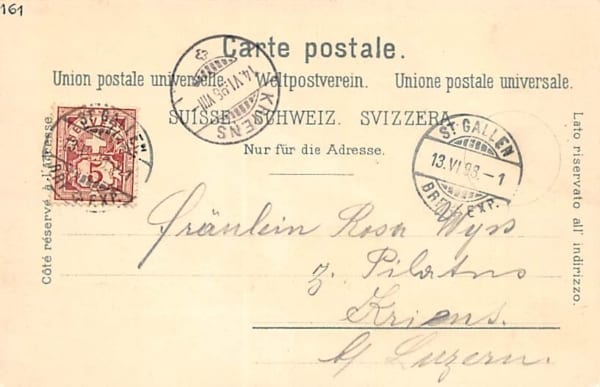 161
Carte postale.
Union postale universelle. Weltpostverein. Unione postale universale.
SUISSE. SCHWEIZ. SVIZZERA.
Nur für die Adresse.
Côté réservé à l'adresse.
Lato riservato all' indirizzo.
KRIENS
14.VI.98.VIII
ST. GALLEN
13.VI.98.-1
BRF. EXP.
ST. GALLEN
5
Fräulein Rosa Wyss
z. Pilatus
Kriens.
b/ Luzern.